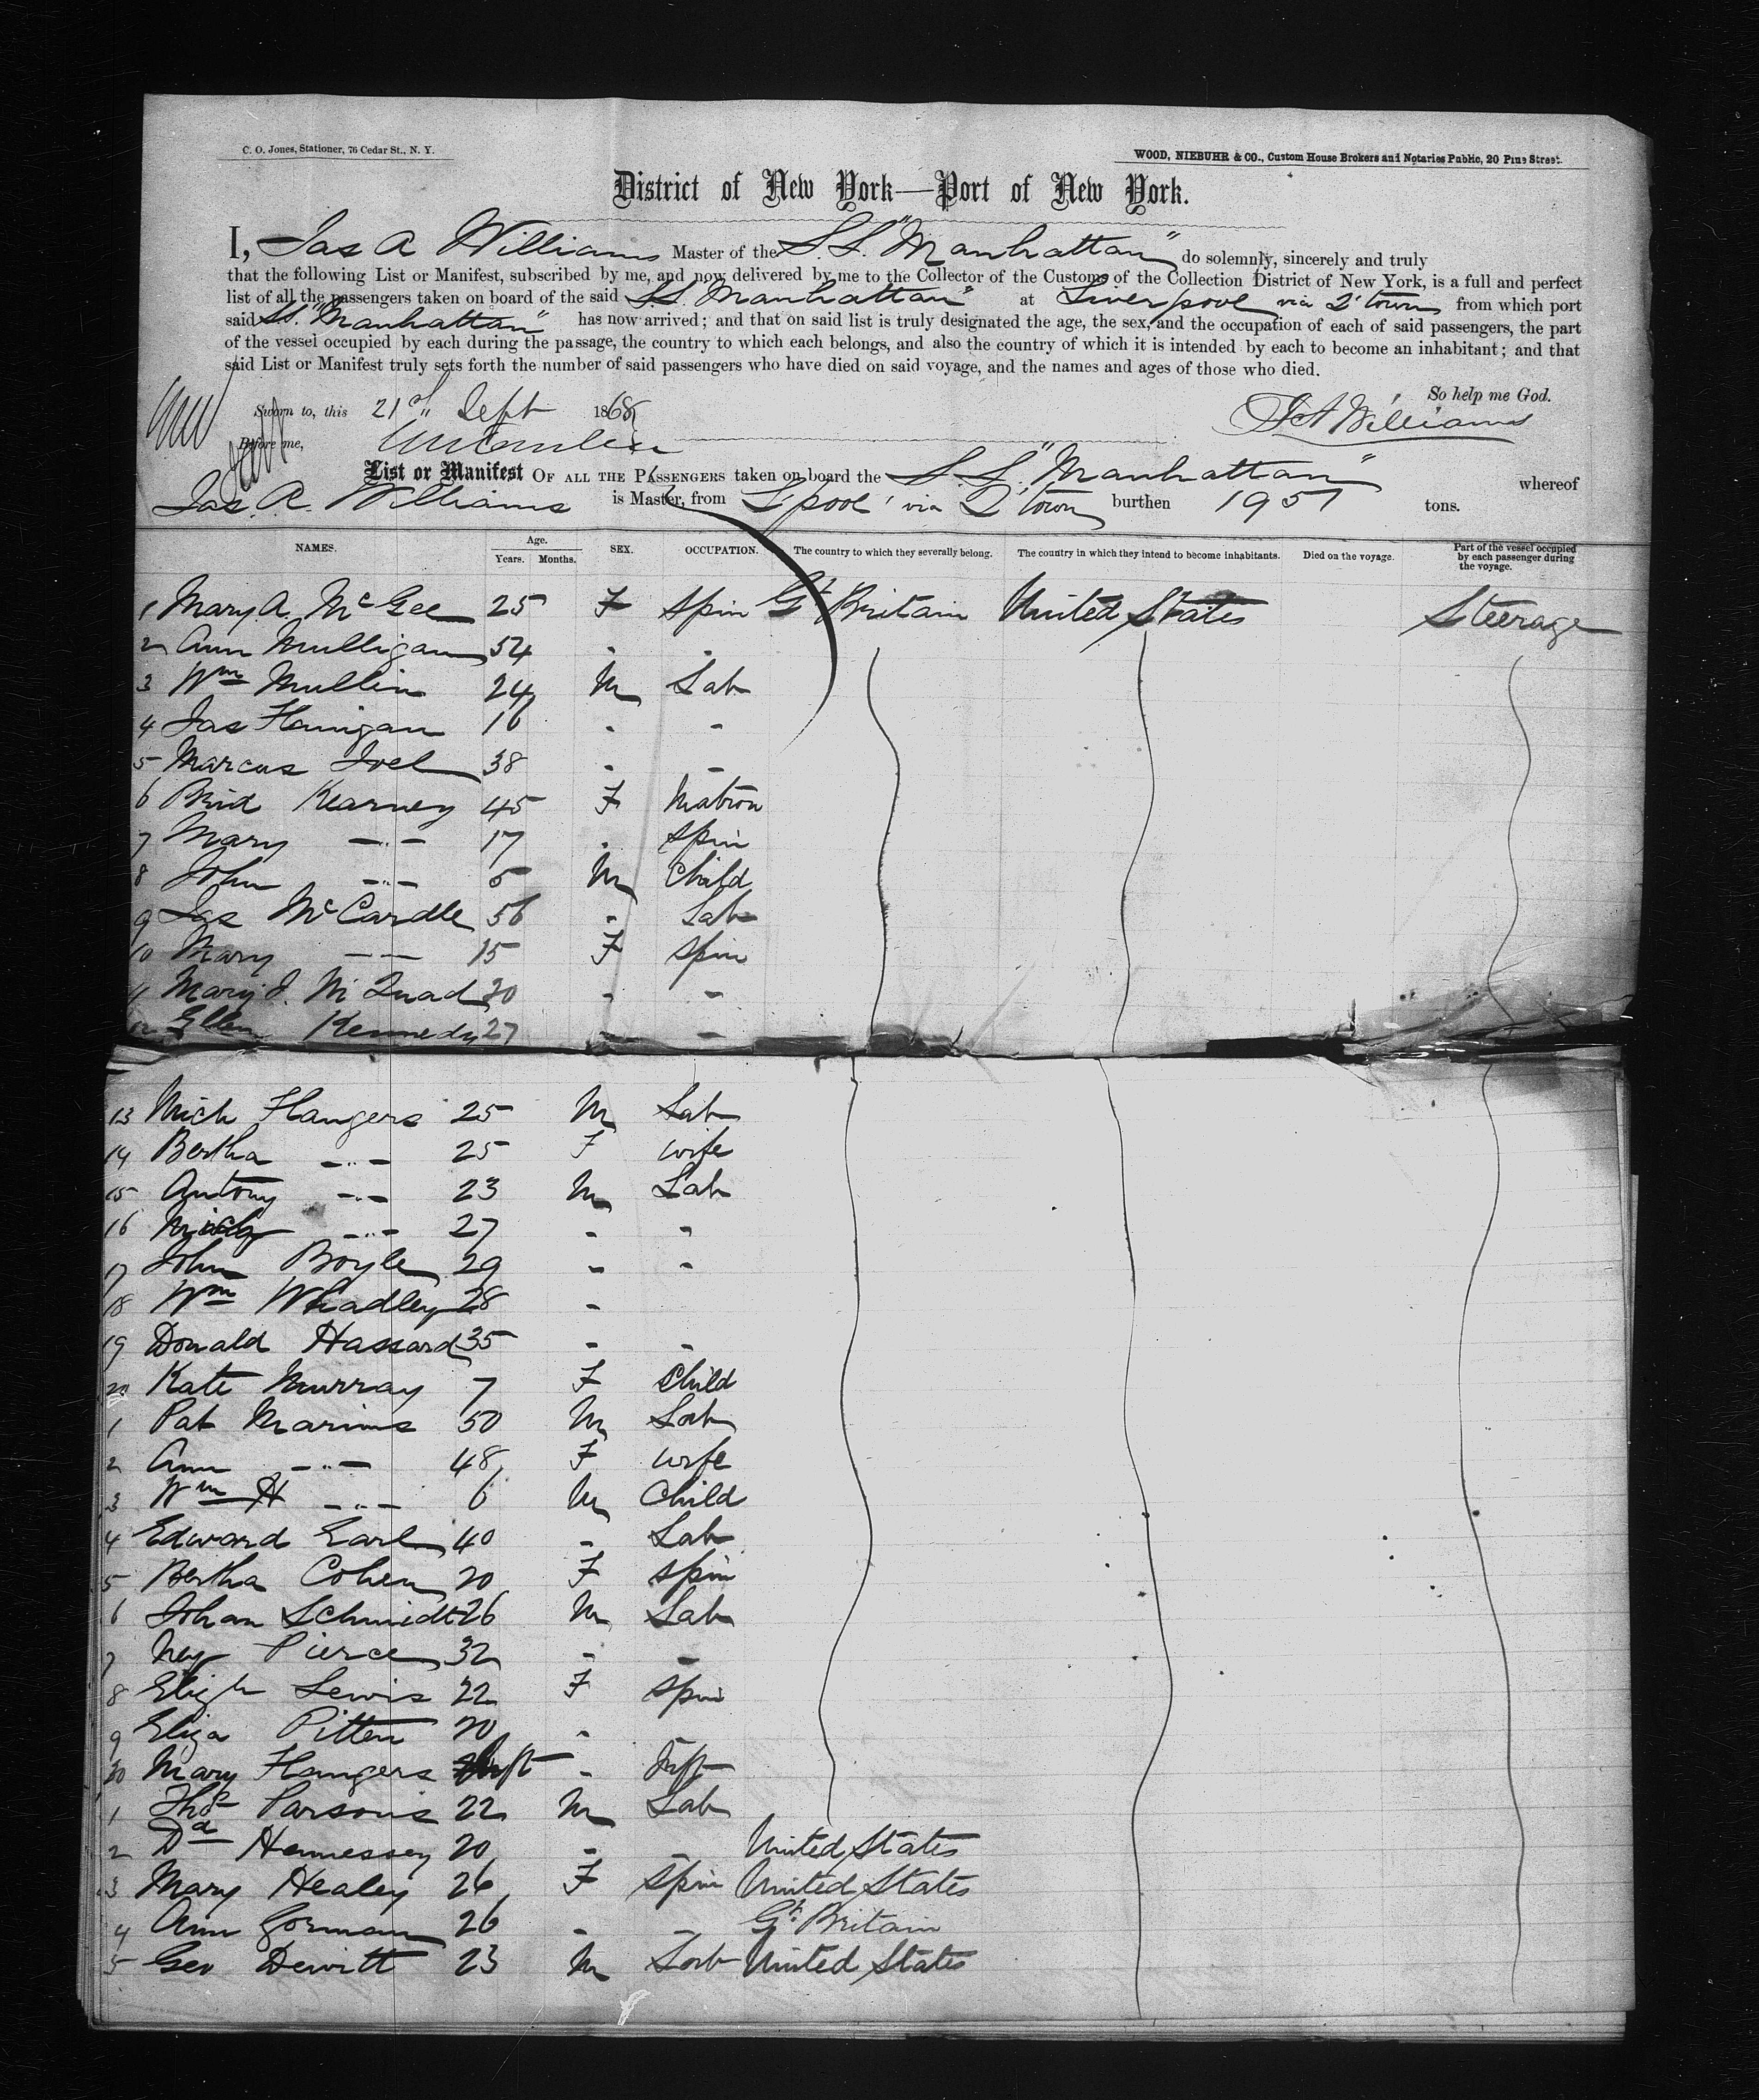 C. O. Jones, Stationer, 76 Cedar St., N. Y.
WOOD, NIEBUHR & CO., Custom House Brokers and Notaries Public, 20 Pine Street.
District of New York—Port of New York.
I, Jas A Williams Master of the S.S. "Manhattan" do solemnly, sincerely and truly
that the following List or Manifest, subscribed by me, and now delivered by me to the Collector of the Customs of the Collection District of New York, is a full and perfect
list of all the passengers taken on board of the said S.S. "Manhattan" at Liverpool via Q'town from which port
said SS. "Manhattan" has now arrived; and that on said list is truly designated the age, the sex, and the occupation of each of said passengers, the part
of the vessel occupied by each during the passage, the country to which each belongs, and also the country of which it is intended by each to become an inhabitant; and that
said List or Manifest truly sets forth the number of said passengers who have died on said voyage, and the names and ages of those who died.
So help me God.
Sworn to, this 21st Sept 1868 JA Williams
Before me,
List or Manifest OF ALL THE PASSENGERS taken on board the S.S. "Manhattan" whereof
Jas. A. Williams is Master, from L'pool via Q'town burthen 1957 tons.
NAMES. Age. Years. Months. SEX. OCCUPATION. The country to which they severally belong. The country in which they intend to become inhabitants. Died on the voyage. Part of the vessel occupied by each passenger during the voyage.
1 Mary A. McGee 25 F Spin Gt Britain United States Steerage
2 Ann Mulligan 34 " "
3 Wm Mullin 24 M Lab
4 Jas Flanigan 16 " -
5 Marcus Joel 38 " -
6 Brid Kearney 45 F Matron
7 Mary -"- 17 " Spin
8 John -"- 5 M Child
9 Jas McCardle 56 - Lab
10 Mary -- 15 F Spin
11 Mary J. McQuad 30 - -
12 Ellen Kennedy 27 - -
13 Mich Flangers 25 M Lab
14 Bertha -"- 25 F wife
15 Antony -"- 23 M Lab
16 -"- 27 - -
17 John Boyle 29 - -
18 Wm Whadley 28 -
19 Donald Hassard 35 - -
20 Kate Murray 7 F Child
1 Pat Marims 50 M Lab
2 Ann -"- 48 F wife
3 Wm H -"- 6 M Child
4 Edward Earl 40 - Lab
5 Bertha Cohen 20 F Spin
6 Johan Schmidt 26 M Lab
7 Pierce 32 - -
8 Lewis 22 F Spin
9 Eliza Pitten 20 -
30 Mary Flangers Inft - Inft
1 Thos Parsons 22 M Lab
2 Dd Hennessey 20 - - United States
3 Mary Healey 26 F Spin United States
4 Ann Gorman 26 - - Gt. Britain
5 Geo Dewitt 23 M Lab United States